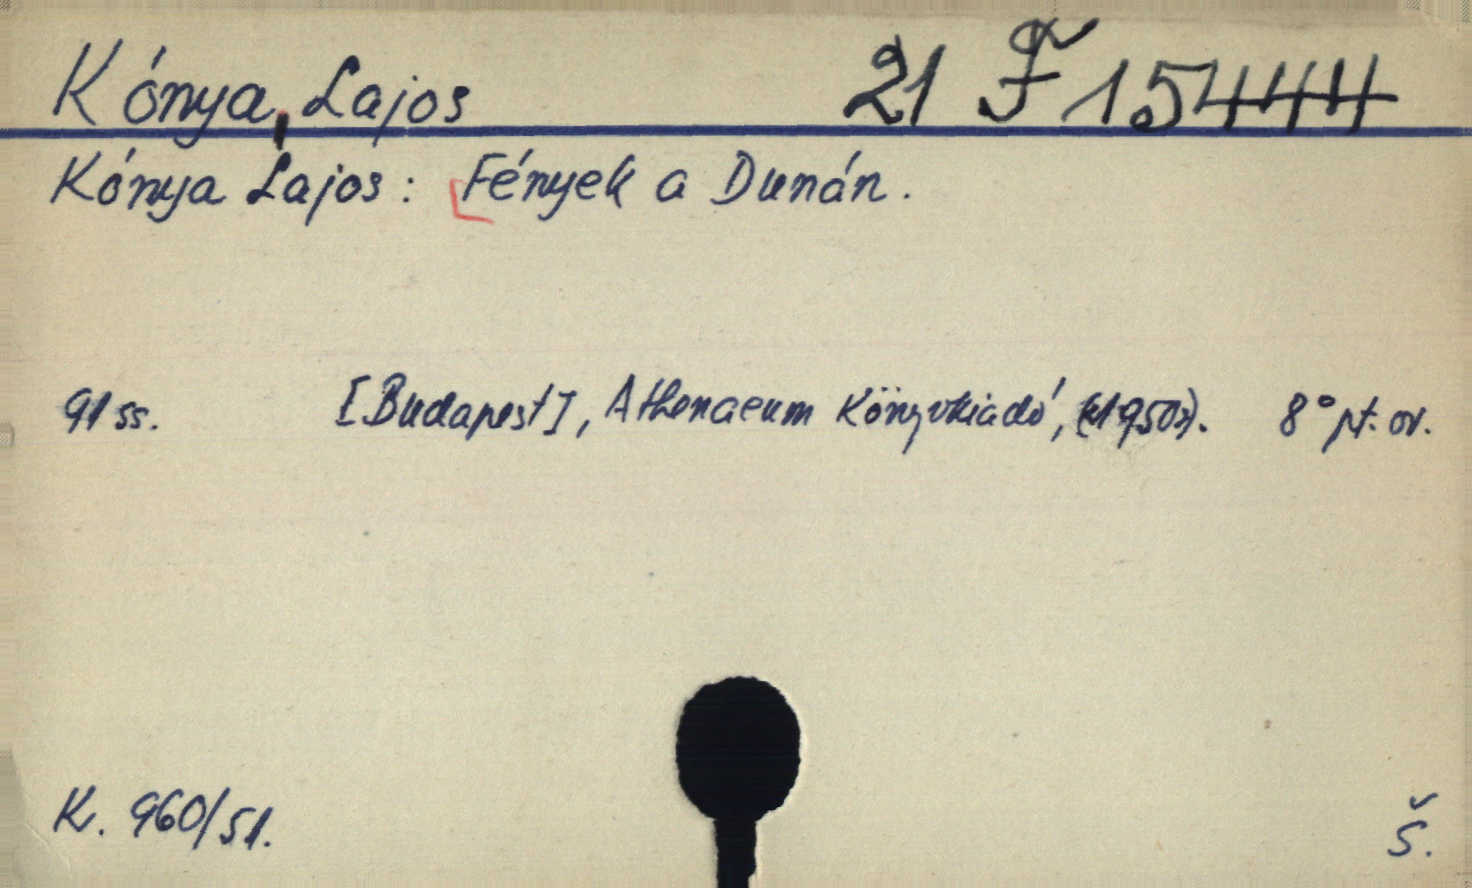 Kónya, Lajos 21 F 15444
Kónya Lajos: Fények a Dunán.
91 ss. [Budapest], Athenaeum Könyvkiadó, (1950). 8° pt. ov.
K. 960/51. Š.